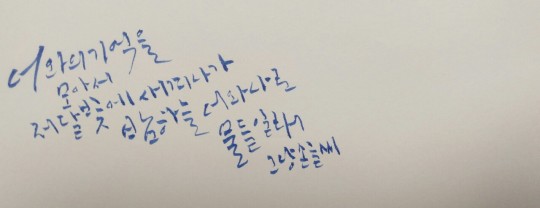 너와의기억을
모아서
저달빛에 새피나가
밤하늘 너와나로
물들일꺼야
그냥손글씨